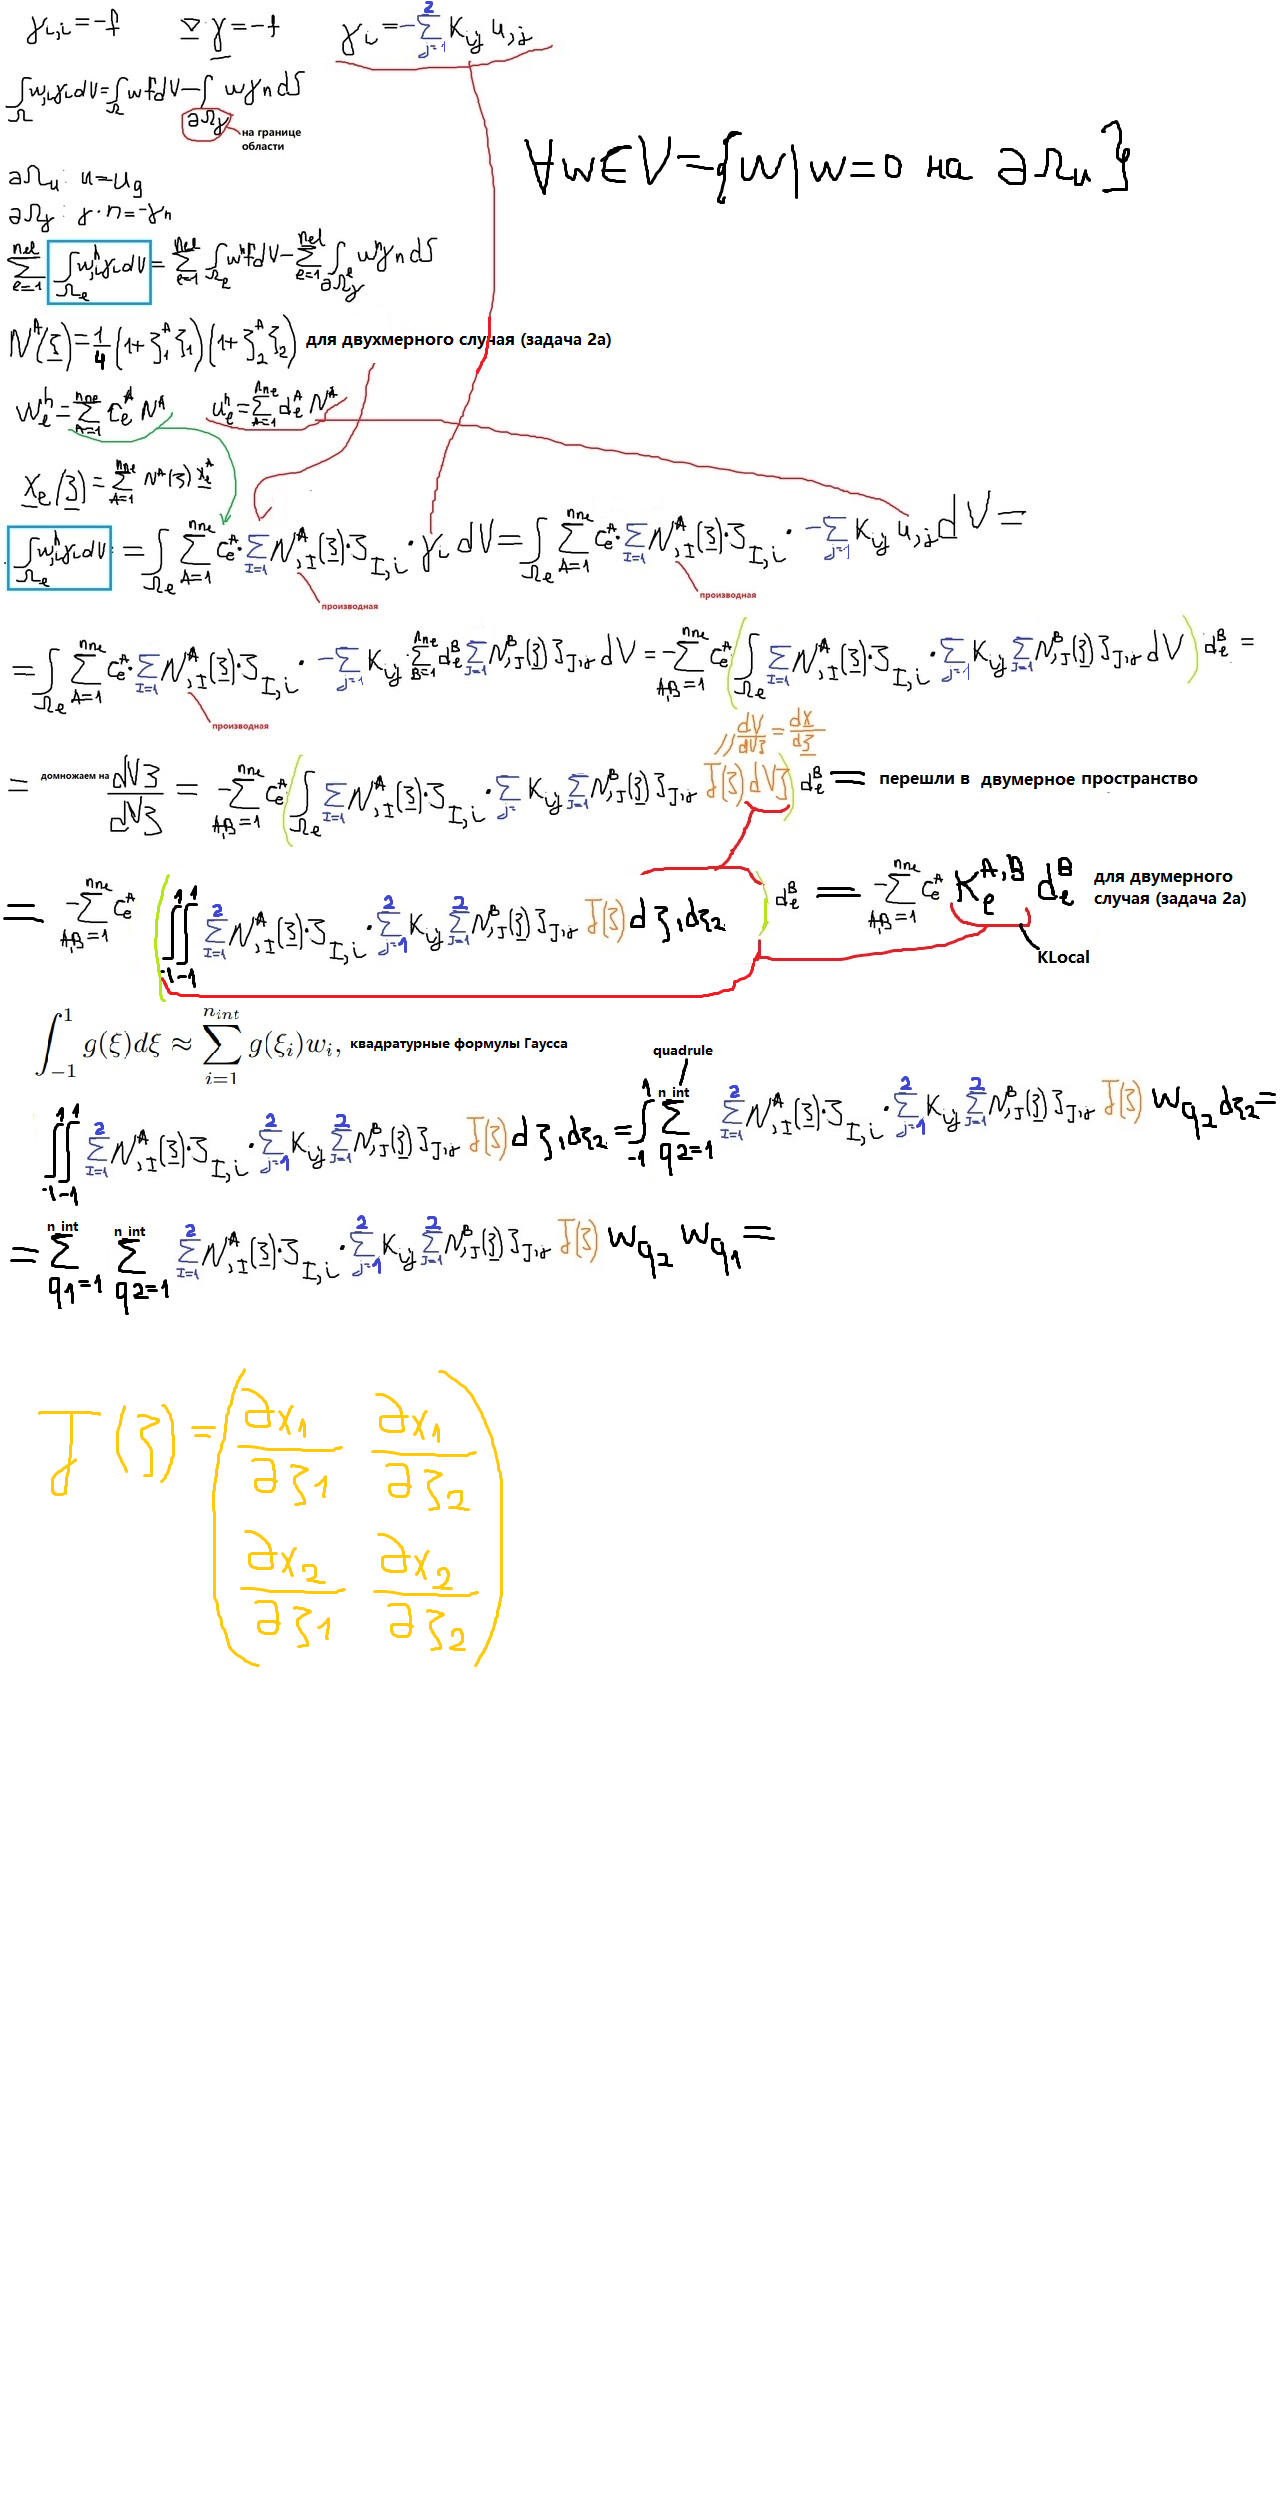 γ_{i,i} = -f    ∇·γ = -f    γ_i = -∑_{j=1}^{2} K_{ij} u_{,j}
∫_Ω w_{,i} γ_i dV = ∫_Ω w f dV - ∫_{∂Ω_γ} w γ_n dS
на границе
области
∀w∈V={w|w=0 на ∂Ω_u}
∂Ω_u: u=u_g
∂Ω_γ: γ·n=-γ_n
∑_{e=1}^{nel} ∫_{Ω_e} w^h_{,i} γ_i dV = ∑_{e=1}^{nel} ∫_{Ω_e} w^h f dV - ∑_{e=1}^{nel} ∫_{∂Ω^e_γ} w^h γ_n dS
N^A(ξ) = 1/4 (1+ξ_1^A ξ_1)(1+ξ_2^A ξ_2) для двухмерного случая (задача 2а)
w_e^h = ∑_{A=1}^{nne} c_e^A N^A    u_e^h = ∑_{A=1}^{nne} d_e^A N^A
x_e(ξ) = ∑_{A=1}^{nne} N^A(ξ) x_e^A
∫_{Ω_e} w^h_{,i} γ_i dV = ∫_{Ω_e} ∑_{A=1}^{nne} c_e^A · ∑_{I=1} N^A_{,I}(ξ)·ξ_{I,i} · γ_i dV = ∫_{Ω_e} ∑_{A=1}^{nne} c_e^A · ∑_{I=1} N^A_{,I}(ξ)·ξ_{I,i} · -∑_{j=1} K_{ij} u_{,j} dV =
производная    производная
= ∫_{Ω_e} ∑_{A=1}^{nne} c_e^A · ∑_{I=1} N^A_{,I}(ξ)·ξ_{I,i} · -∑_{j=1} K_{ij} · ∑_{B=1}^{nne} d_e^B ∑_{J=1} N^B_{,J}(ξ) ξ_{J,j} dV = -∑_{A,B=1}^{nne} c_e^A ( ∫_{Ω_e} ∑_{I=1} N^A_{,I}(ξ)·ξ_{I,i} · ∑_{j=1} K_{ij} ∑_{J=1} N^B_{,J}(ξ) ξ_{J,j} dV ) d_e^B =
производная
// dV/dVξ = dx/dξ
= домножаем на dVξ/dVξ = -∑_{A,B=1}^{nne} c_e^A ( ∫_{Ω_e} ∑_{I=1} N^A_{,I}(ξ)·ξ_{I,i} · ∑_{j=} K_{ij} ∑_{J=1} N^B_{,J}(ξ) ξ_{J,j} J(ξ) dVξ ) d_e^B = перешли в двумерное пространство
= -∑_{A,B=1}^{nne} c_e^A ( ∫_{-1}^{1} ∫_{-1}^{1} ∑_{I=1}^{2} N^A_{,I}(ξ)·ξ_{I,i} · ∑_{j=1}^{2} K_{ij} ∑_{J=1}^{2} N^B_{,J}(ξ) ξ_{J,j} J(ξ) dξ_1 dξ_2 ) d_e^B = -∑_{A,B=1}^{nne} c_e^A K_e^{A,B} d_e^B
для двумерного
случая (задача 2а)
KLocal
∫_{-1}^{1} g(ξ)dξ ≈ ∑_{i=1}^{n_{int}} g(ξ_i)w_i, квадратурные формулы Гаусса
quadrule
∫_{-1}^{1} ∫_{-1}^{1} ∑_{I=1}^{2} N^A_{,I}(ξ)·ξ_{I,i} · ∑_{j=1}^{2} K_{ij} ∑_{J=1}^{2} N^B_{,J}(ξ) ξ_{J,j} J(ξ) dξ_1 dξ_2 = ∫_{-1}^{1} ∑_{q2=1}^{n_int} ∑_{I=1}^{2} N^A_{,I}(ξ)·ξ_{I,i} · ∑_{j=1}^{2} K_{ij} ∑_{J=1}^{2} N^B_{,J}(ξ) ξ_{J,j} J(ξ) w_{q2} dξ_2 =
= ∑_{q1=1}^{n_int} ∑_{q2=1}^{n_int} ∑_{I=1}^{2} N^A_{,I}(ξ)·ξ_{I,i} · ∑_{j=1}^{2} K_{ij} ∑_{J=1}^{2} N^B_{,J}(ξ) ξ_{J,j} J(ξ) w_{q2} w_{q1} =
J(ξ) = ( ∂x_1/∂ξ_1    ∂x_1/∂ξ_2
∂x_2/∂ξ_1    ∂x_2/∂ξ_2 )